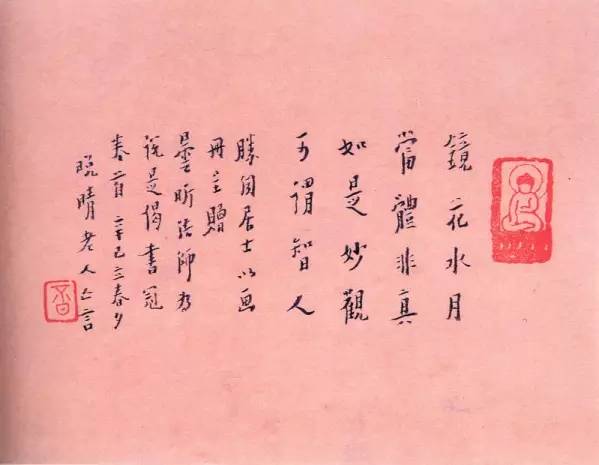 鏡花水月
當體非真
如是妙觀
可謂智人
居士以画
冊贈
曇昕法師為
說是偈書冠
卷首辛巳立春夕
晚晴老人亡言